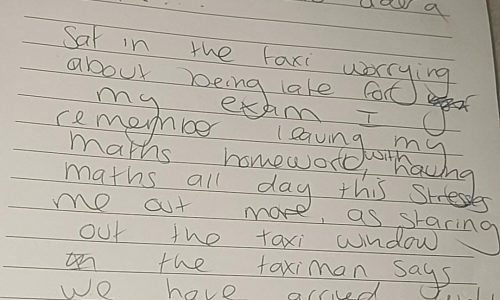 a
Sat in the taxi worrying
about being late for
my exam I
remember leaving my
maths homework, with having
maths all day this stress
me out more, as staring
out the taxi window
the taximan says
we have arrived